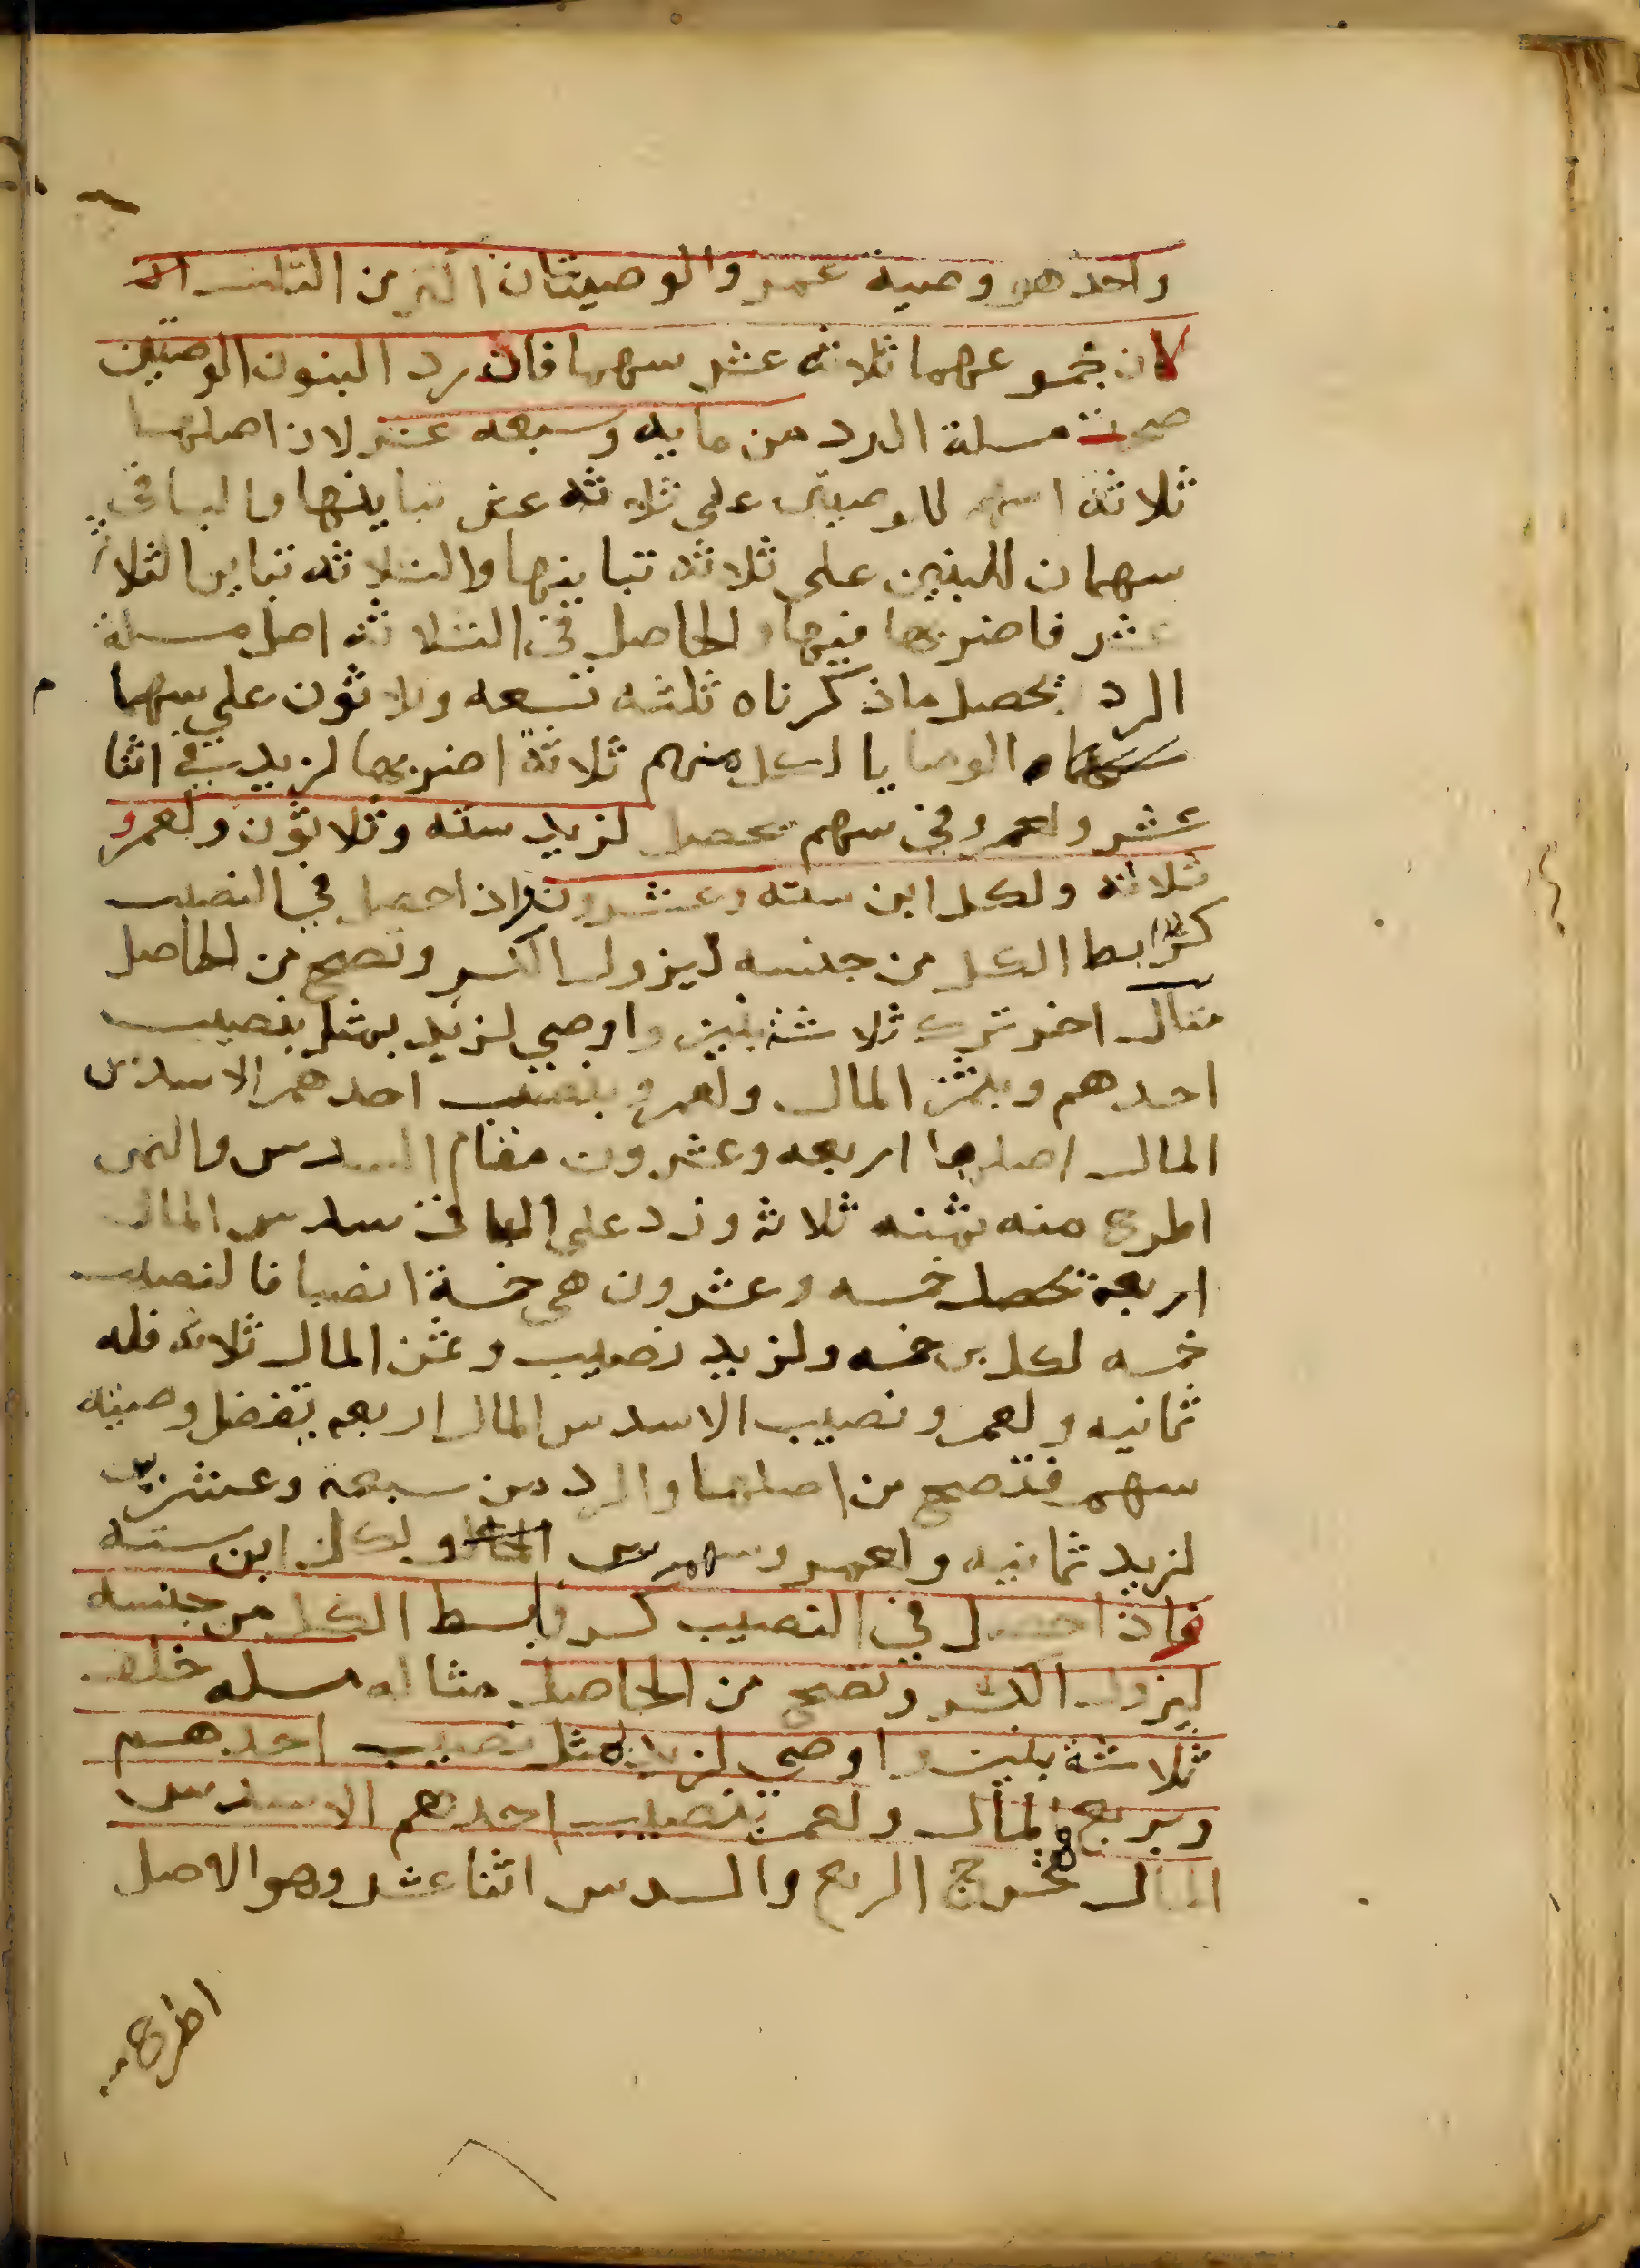 واحد هو وصية عمرو والوصيتان اكثر من الثلث
لان مجموعهما ثلاثه عشر سهما فان رد البنون الوصيتين
صحت مسلة الرد من مايه وسبعه عشر لان اصلها
ثلاثة اسهم للوصيتين على ثلاثه عشر تباينها والباقي
سهمان للبنين على ثلاثه تباينها والثلاثه تباين الثلاثة
عشر فاضربها فيها والحاصل في الثلاثه اصل مسلة
الرد يحصل ما ذكرناه ثلثه تسعه وثلاثون على سهما
الوصايا لكل منهم ثلاثة اضربها لزيد في اثنا
عشر ولعمرو في سهم يحصل لزيد سته وثلاثون ولعمرو
ثلاثه ولكل ابن سته وعشرون واذا حصل في النصيب
كسرا بسط الكل من جنسه ليزول الكسر وتصح من الحاصل
مثال اخر ترك ثلاثة بنين واوصى لزيد بمثل نصيب
احدهم وبثمن المال ولعمرو بنصيب احدهم الا سدس
المال اصلها اربعه وعشرون مقام السدس والثمن
اطرح منه ثمنه ثلاثة وزد على الباقي سدس المال
اربعة تحصل خمسه وعشرون هي خمسة انصبا فالنصيب
خمسه لكل بن خمسه ولزيد نصيب وثمن المال ثلاثه فله
ثمانيه ولعمرو نصيب الا سدس المال اربعه يفضل وصيته
سهم فتصح من اصلها والرد من سبعة وعشرين
لزيد ثمانيه ولعمرو سهم ولكل ابن سته
فاذا حصل في النصيب كسر فابسط الكل من جنسه
ليزول الكسر وتصح من الحاصل مثاله مسله خلف
ثلاثة بنين واوصى لزيد بمثل نصيب احدهم
وبربع المال ولعمرو بنصيب احدهم الا سدس
المال فمخرج الربع والسدس اثنا عشر وهو الاصل
اطرح